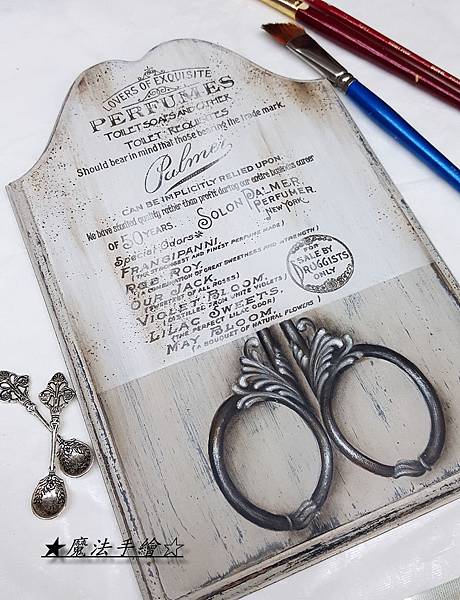 LOVERS OF EXQUISITE
PERFUMES
TOILET SOAPS AND OTHER
TOILET REQUISITES
Should bear in mind that those bearing the trade mark,
Palmer
CAN BE IMPLICITLY RELIED UPON.
We have studied quality rather than profit during our entire business career
OF 50 YEARS. SOLON PALMER.
PERFUMER,
NEW YORK.
Special Odors
FRANGIPANNI,
(THE STRONGEST AND FINEST PERFUME MADE)
ROB ROY,
(A COMBINATION OF GREAT SWEETNESS AND STRENGTH)
OUR JACK,
(SWEETEST OF ALL ROSES)
VIOLET BLOOM,
(DISTILLED FROM WHITE VIOLETS)
LILAC SWEETS,
(THE PERFECT LILAC ODOR)
MAY BLOOM,
(A BOUQUET OF NATURAL FLOWERS)
FOR
SALE BY
DRUGGISTS
ONLY
★魔法手繪☆